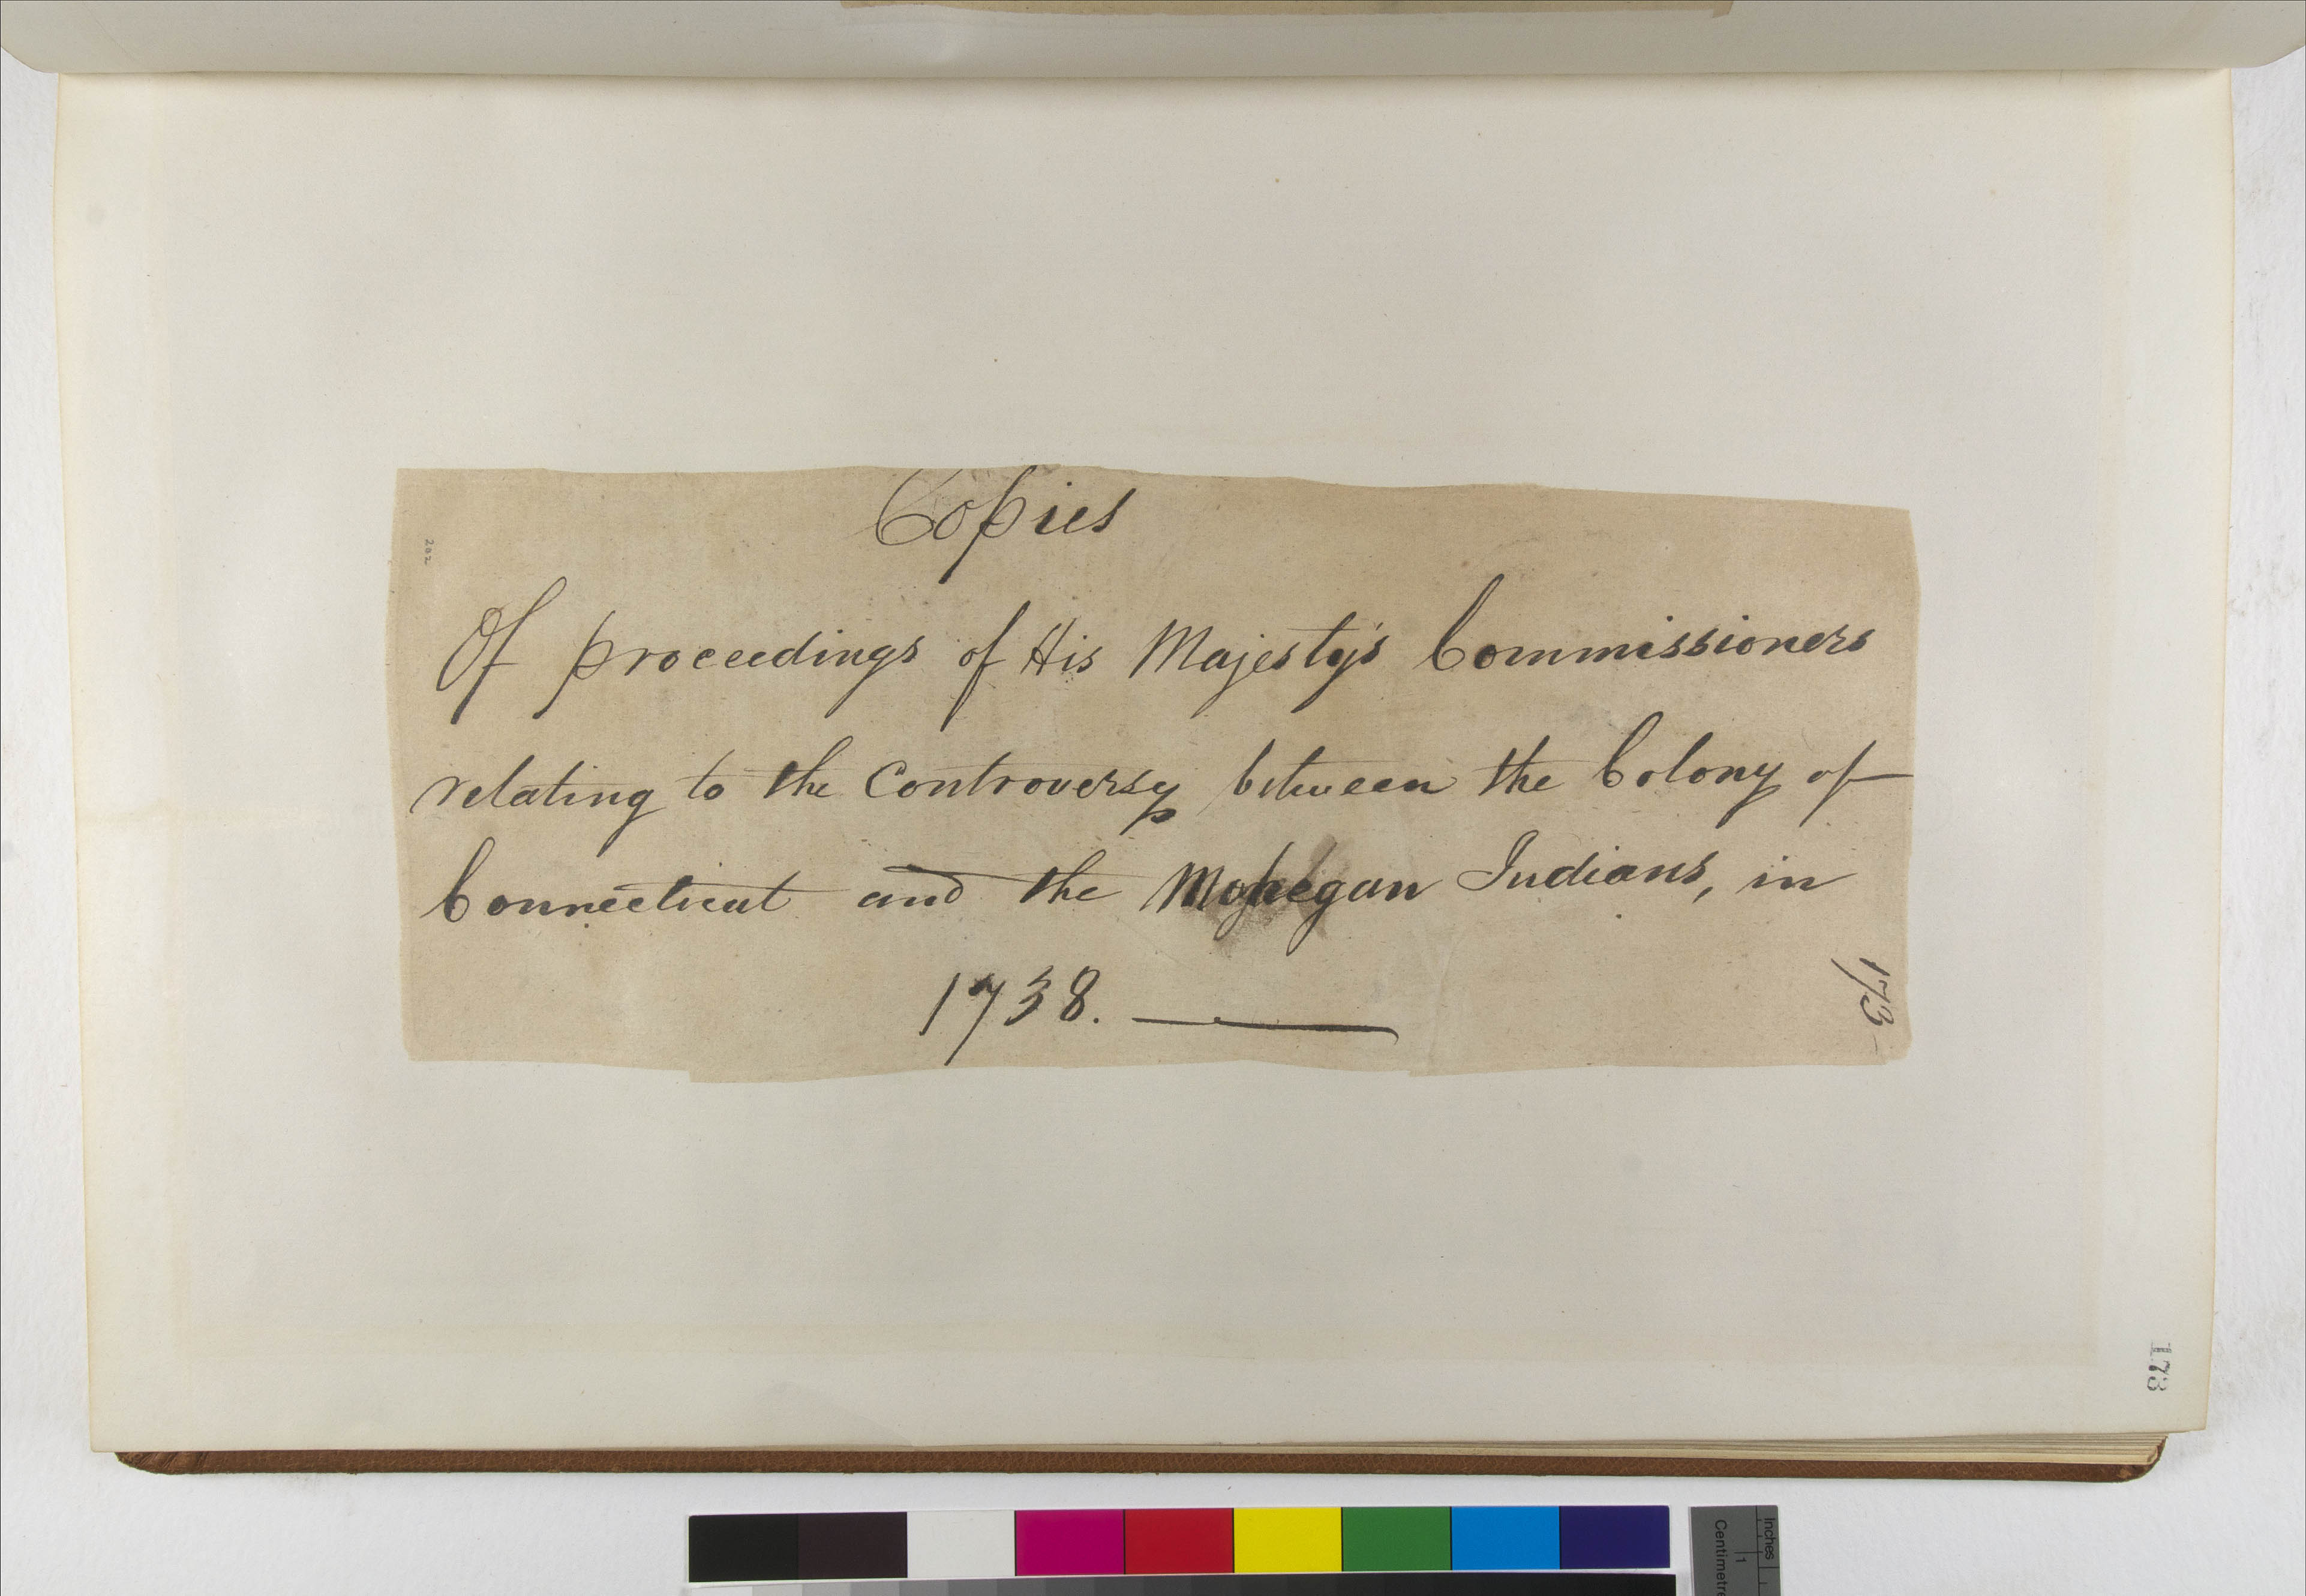 Copies
Of proceedings of His Majesty's Commissioners
relating to the Controversy between the Colony of
Connecticut and the Mohegan Indians, in
1738.
202
173
173
Inches
Centimetre
1